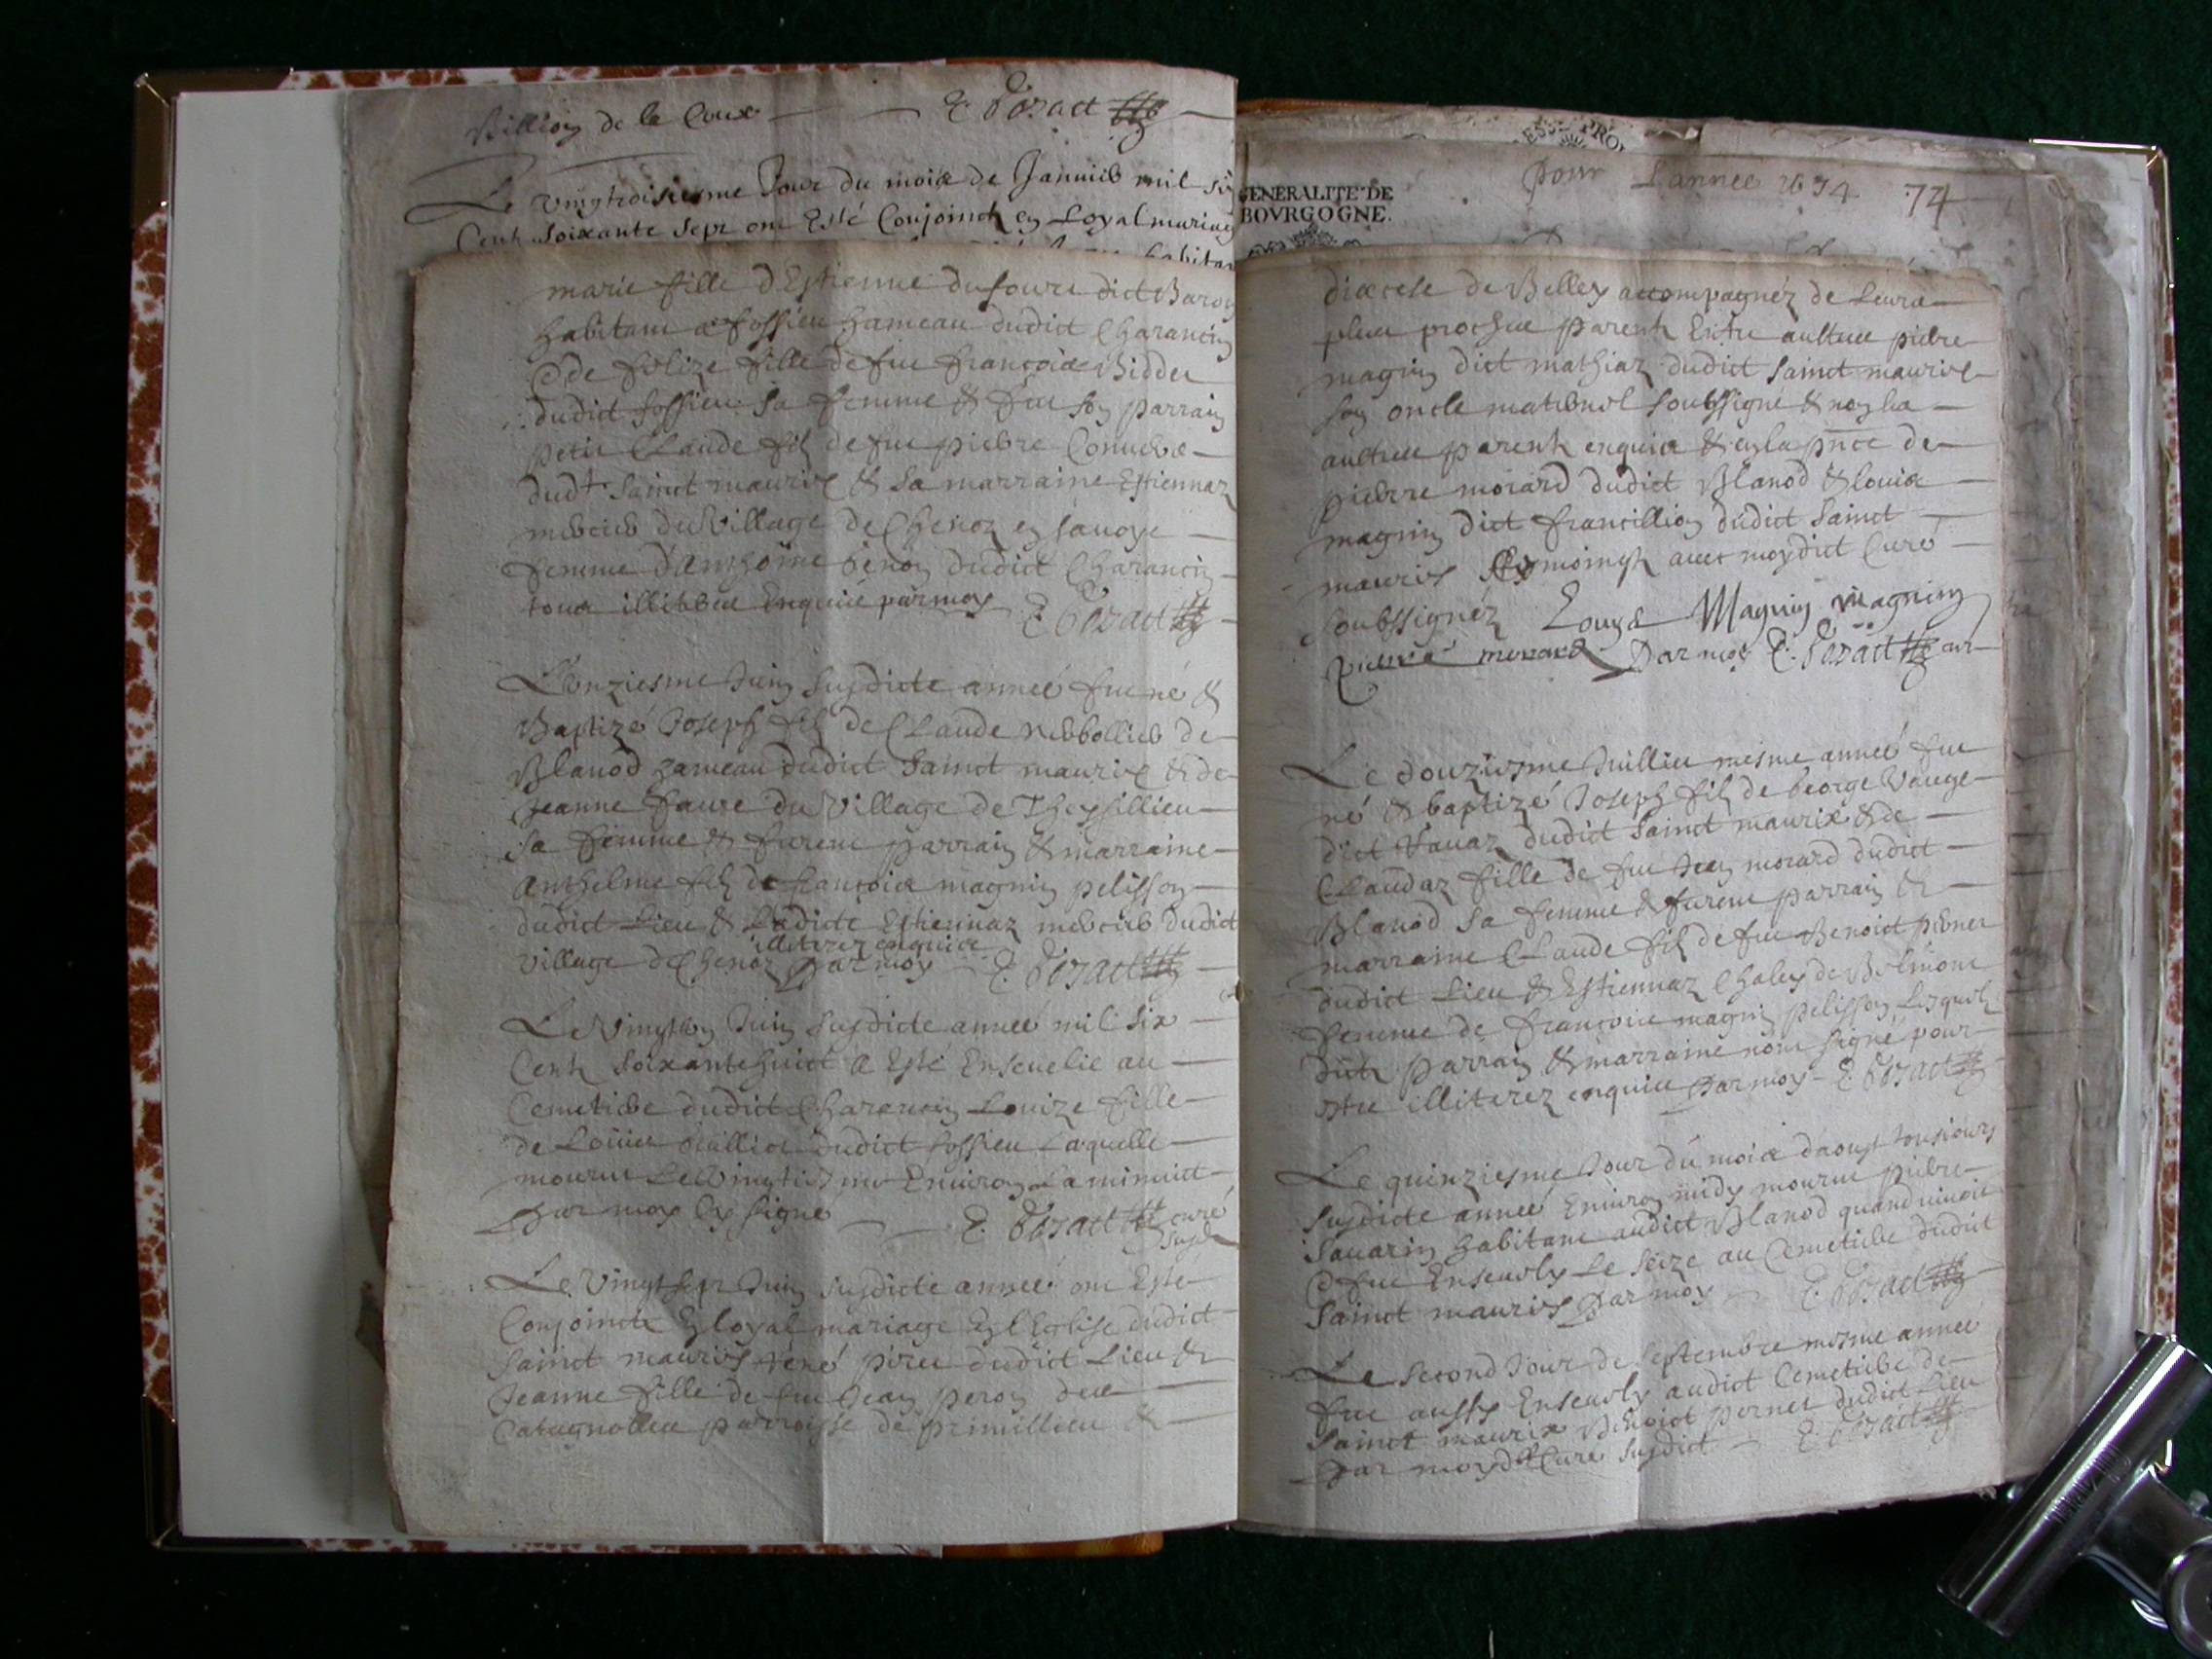 Billion de la Coux
Le Vingtroisiesme Jour du mois de Januier mil six
Cent soixante sept ont Esté Conjoinctz en Loyal mariage
marie fille d'Estienne dufour dict Baron
habitant a fossieu hameau dudict Charancin
& de felize fille de fut françois Bidder
dudict fossieu sa femme & fut son parrain
petit Claude filz de fut pierre
dudt Sainct mauris & sa marraine Estiennaz
mercier du Village de Chenoz en sauoye
femme d'Anthoine dudict Charancin
tous illiterez Enquis par moy
L'onziesme Juin susdicte année fut né &
Baptizé Joseph filz de Claude de
Blanod hameau dudict Sainct mauris & de
Jeanne faure du Village de Theysillieu
sa femme & furent parrain & marraine
Anthelme filz de françois magnin pelisson
dudict Lieu & Ladicte Estiennaz mercier dudict
illiterez enquis
village de Chenoz par moy
Le Vingt Juin susdicte année mil six
Cent soixante huict a Esté Enseuelie au
Cemetiere dudict Charancin Louize fille
de Louis dudict fossieu Laquelle
mourut Le Vingtiesme Enuiron La minuict
Par moy soubsigné curé
susdt
Le Vingt sept Juin susdicte année ont Esté
Conjoinctz En loyal mariage En l'Eglise dudict
Sainct mauris réné dudict Lieu &
Jeanne fille de fut Jean peron des
Catagnolles parroisse de primillieu &
GENERALITE DE
BOVRGOGNE.
Pour L'annee 1674 74
diocese de Belley accompagnéz de Leurs
plus proches parentz Entre aultres pierre
magnin dict mathiaz dudict Sainct mauris
son oncle maternel soubsigné & non les
aultres parentz enquis & en la pnce de
pierre morard dudict Blanod & louis
magnin dict francillion dudict Sainct
mauris tesmoingtz auec moydict Curé
soubssignéz Louys Magnin magnin
pierre morard Par moy cur
Le douziesme Juillet mesme année fut
né & baptizé Joseph filz de George Vauge
dict Vauaz dudict Sainct mauris & de
Claudaz fille de fut Jean morard dudict
Blanod sa femme & furent parrain &
marraine Claude filz de fut Benoict pernet
dudict Lieu & Estiennaz Chaley de Belmont
femme de françois magnin pelisson Lesquelz
dictz parrain & marraine n'ont signé pour
estre illiterez enquis par moy
Le quinziesme Jour du mois d'aoust tousiours
susdicte année Enuiron midy mourut pierre
Sauarin habitant audict Blanod quand viuoit
& fut Enseuely Le seize au Cemetiere dudict
Sainct mauris par moy
Le second Jour de septembre mesme année
fut aussy Enseuely audict Cemetiere de
Sainct mauris Benoict pernet dudict Lieu
Par moydt Curé susdict